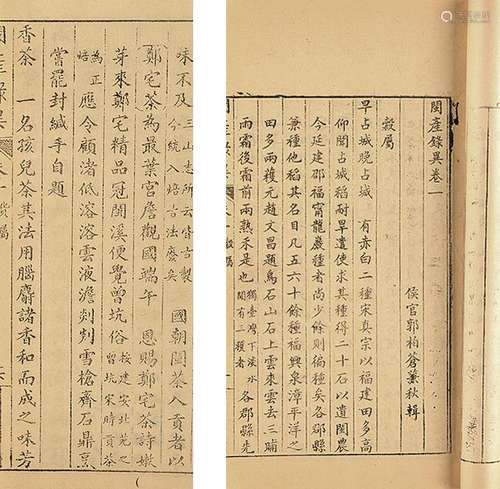 閩產錄異卷一
侯官郭柏蒼蒹秋輯
穀屬
早占城晚占城 有赤白二種宋真宗以福建田多高
仰聞占城稻耐旱遣使求其種得二十石以遺閩農
今延建邵福甯龍巖種者尚少餘則徧種矣各郡縣
兼種他稻其名目凡五六十餘種福興泉漳平洋之
田多兩穫元趙文昌題烏石山石上雲來雲去三晡
雨霜後霜前兩熟禾是也 獨臺灣下淡水間有三穫者 各郡縣先
味不及 三山志所云皆古製今統入焙古法廢矣 國朝閩茶入貢者以
鄭宅茶為最葉宮詹觀國端午 恩賜鄭宅茶詩嫩
芽來鄭宅精品冠閩溪便覺曾坑俗 按建安北苑之曾坑宋時貢茶
焙為正 應令顧渚低溶溶雲液澹剡剡雪槍齊石鼎烹
嘗罷封緘手自題
香茶 一名孩兒茶其法用腦麝諸香和而成之味芳